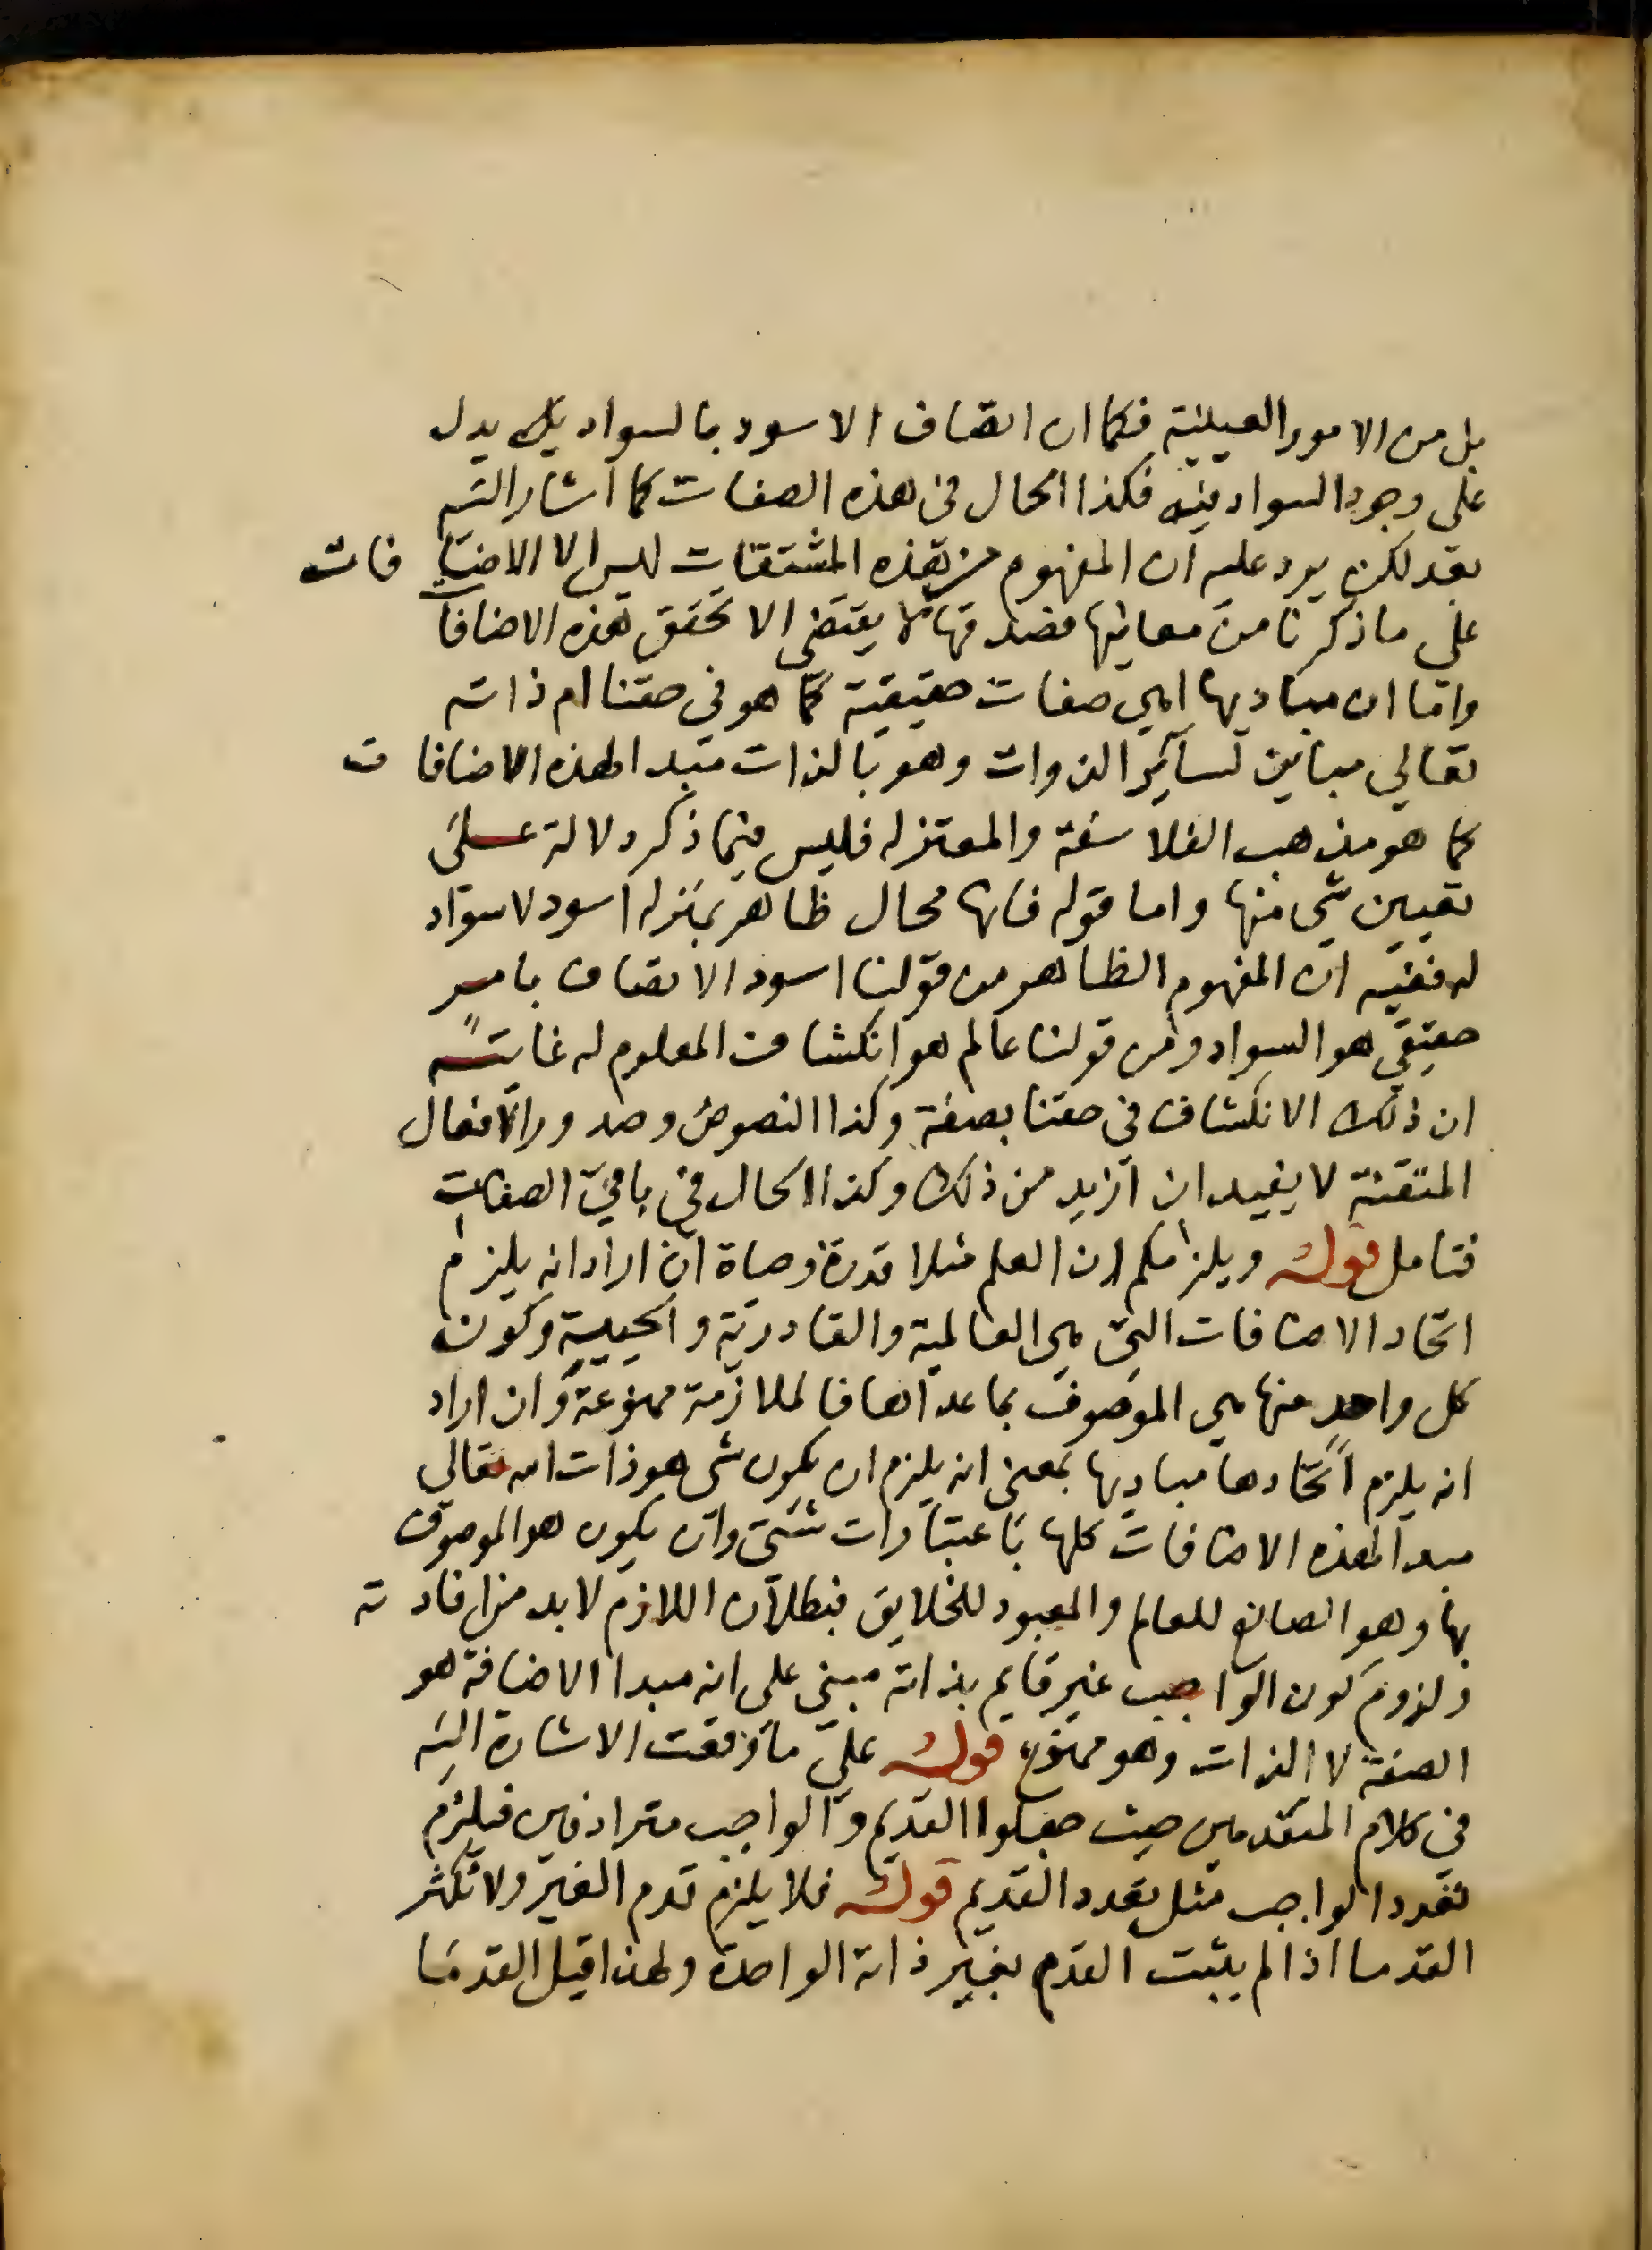 بل من الامور العينية فكما ان اتصاف الاسود بالسواد يدل
على وجود السواد فيه فكذا الحال في هذه الصفات كما اشار اليه
بعد لكن يرد عليه ان المفهوم من هذه المشتقات ليس الا الاضافات
على ما ذكرنا من معانيها فصدقها لا يقتضي الا تحقق هذه الاضافا
واما ان مباديها اهي صفات حقيقية كما هو في حقنا ام ذاته
تعالي مباين لسائر الذوات وهو بالذات مبدا لهذه الاضافات
كما هو مذهب الفلاسفة والمعتزله فليس فيما ذكر دلالة على
تعيين شي منها واما قوله فانه محال ظاهر بمنزله اسود لا سواد
له ففيه ان المفهوم الظاهر من قولنا اسود الاتصاف بامر
حقيقي هو السواد ومن قولنا عالم هو انكشاف المعلوم له غايته
ان ذلك الانكشاف في حقنا بصفة وكذا النصوص وصدور الافعال
المتقنة لا يفيدان ازيد من ذلك وكذا الحال في باقي الصفات
فتامل قوله ويلزمكم ان العلم مثلا قدرة وحياة ان اراد انه يلزم
اتحاد الاضافات التي هي العالمية والقادرية والحيية وكون
كل واحد منها هي الموصوف بما عداها فالملازمة ممنوعة وان اراد
انه يلزم اتحادها مباديها بمعنى انه يلزم ان يكون شي هو ذات الله تعالي
مبدا لهذه الاضافات كلها باعتبارات شتى وان يكون هو الموصوف
بها وهو الصانع للعالم والمعبود للخلايق فبطلان اللازم لا بد من افادته
ولزوم كون الواجب غير قايم بذاته مبني على انه مبدا الاضافة هو
الصفة لا الذات وهو ممنوع قوله علي ما وقعت الاشارة اليه
في كلام المتقدمين حيث جعلوا القديم والواجب مترادفين فيلزم
تعدد الواجب مثل تعدد القديم قوله فلا يلزم قدم الغير ولا تكثر
القدما اذا لم يثبت القدم بغير ذاته الواحدة ولهذا قيل القدما